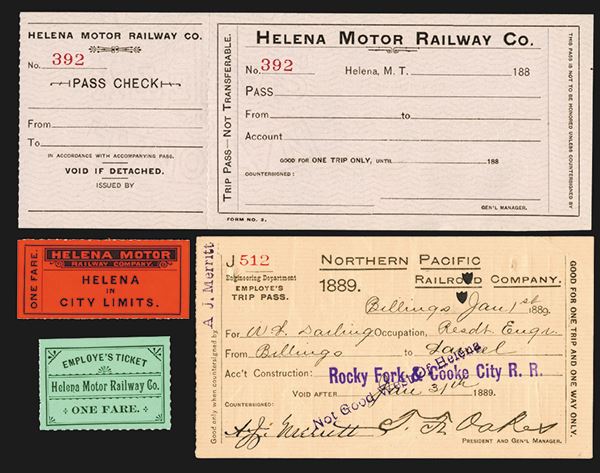 HELENA MOTOR RAILWAY CO.
No. 392
PASS CHECK
From
To
IN ACCORDANCE WITH ACCOMPANYING PASS.
VOID IF DETACHED.
ISSUED BY
TRIP PASS—NOT TRANSFERABLE.
HELENA MOTOR RAILWAY CO.
No. 392
Helena, M. T. 188
PASS
From to
Account
GOOD FOR ONE TRIP ONLY, UNTIL 188
COUNTERSIGNED:
GEN'L MANAGER.
FORM NO. 2.
THIS PASS IS NOT TO BE HONORED UNLESS COUNTERSIGNED BY
ONE FARE.
HELENA MOTOR
RAILWAY COMPANY.
HELENA
IN
CITY LIMITS.
EMPLOYE'S TICKET
Helena Motor Railway Co.
ONE FARE.
Good only when countersigned by A J. Merritt
J 512
Engineering Department
EMPLOYE'S
TRIP PASS.
NORTHERN PACIFIC
RAILROAD COMPANY.
1889.
Billings Jan 1st 1889.
For W. L. Darling Occupation, Resdt. Engr.
From Billings to Laurel
Acc't Construction: Rocky Fork & Cooke City R. R.
Not Good West of Helena
VOID AFTER Jan 31th 1889.
COUNTERSIGNED:
A. J. Merritt T. F. Oakes
PRESIDENT AND GEN'L MANAGER.
GOOD FOR ONE TRIP AND ONE WAY ONLY.